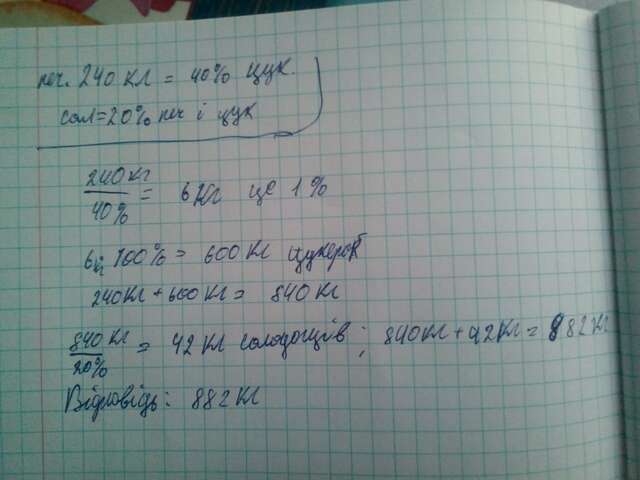 печ. 240 кг = 40% цук.
сол = 20% печ і цук
240 кг / 40% = 6 кг це 1%
100% = 600 кг цукерок
240 кг + 600 кг = 840 кг
840 кг / 20% = 42 кг солодощів ; 840 кг + 42 кг = 882 кг
Відповідь: 882 кг